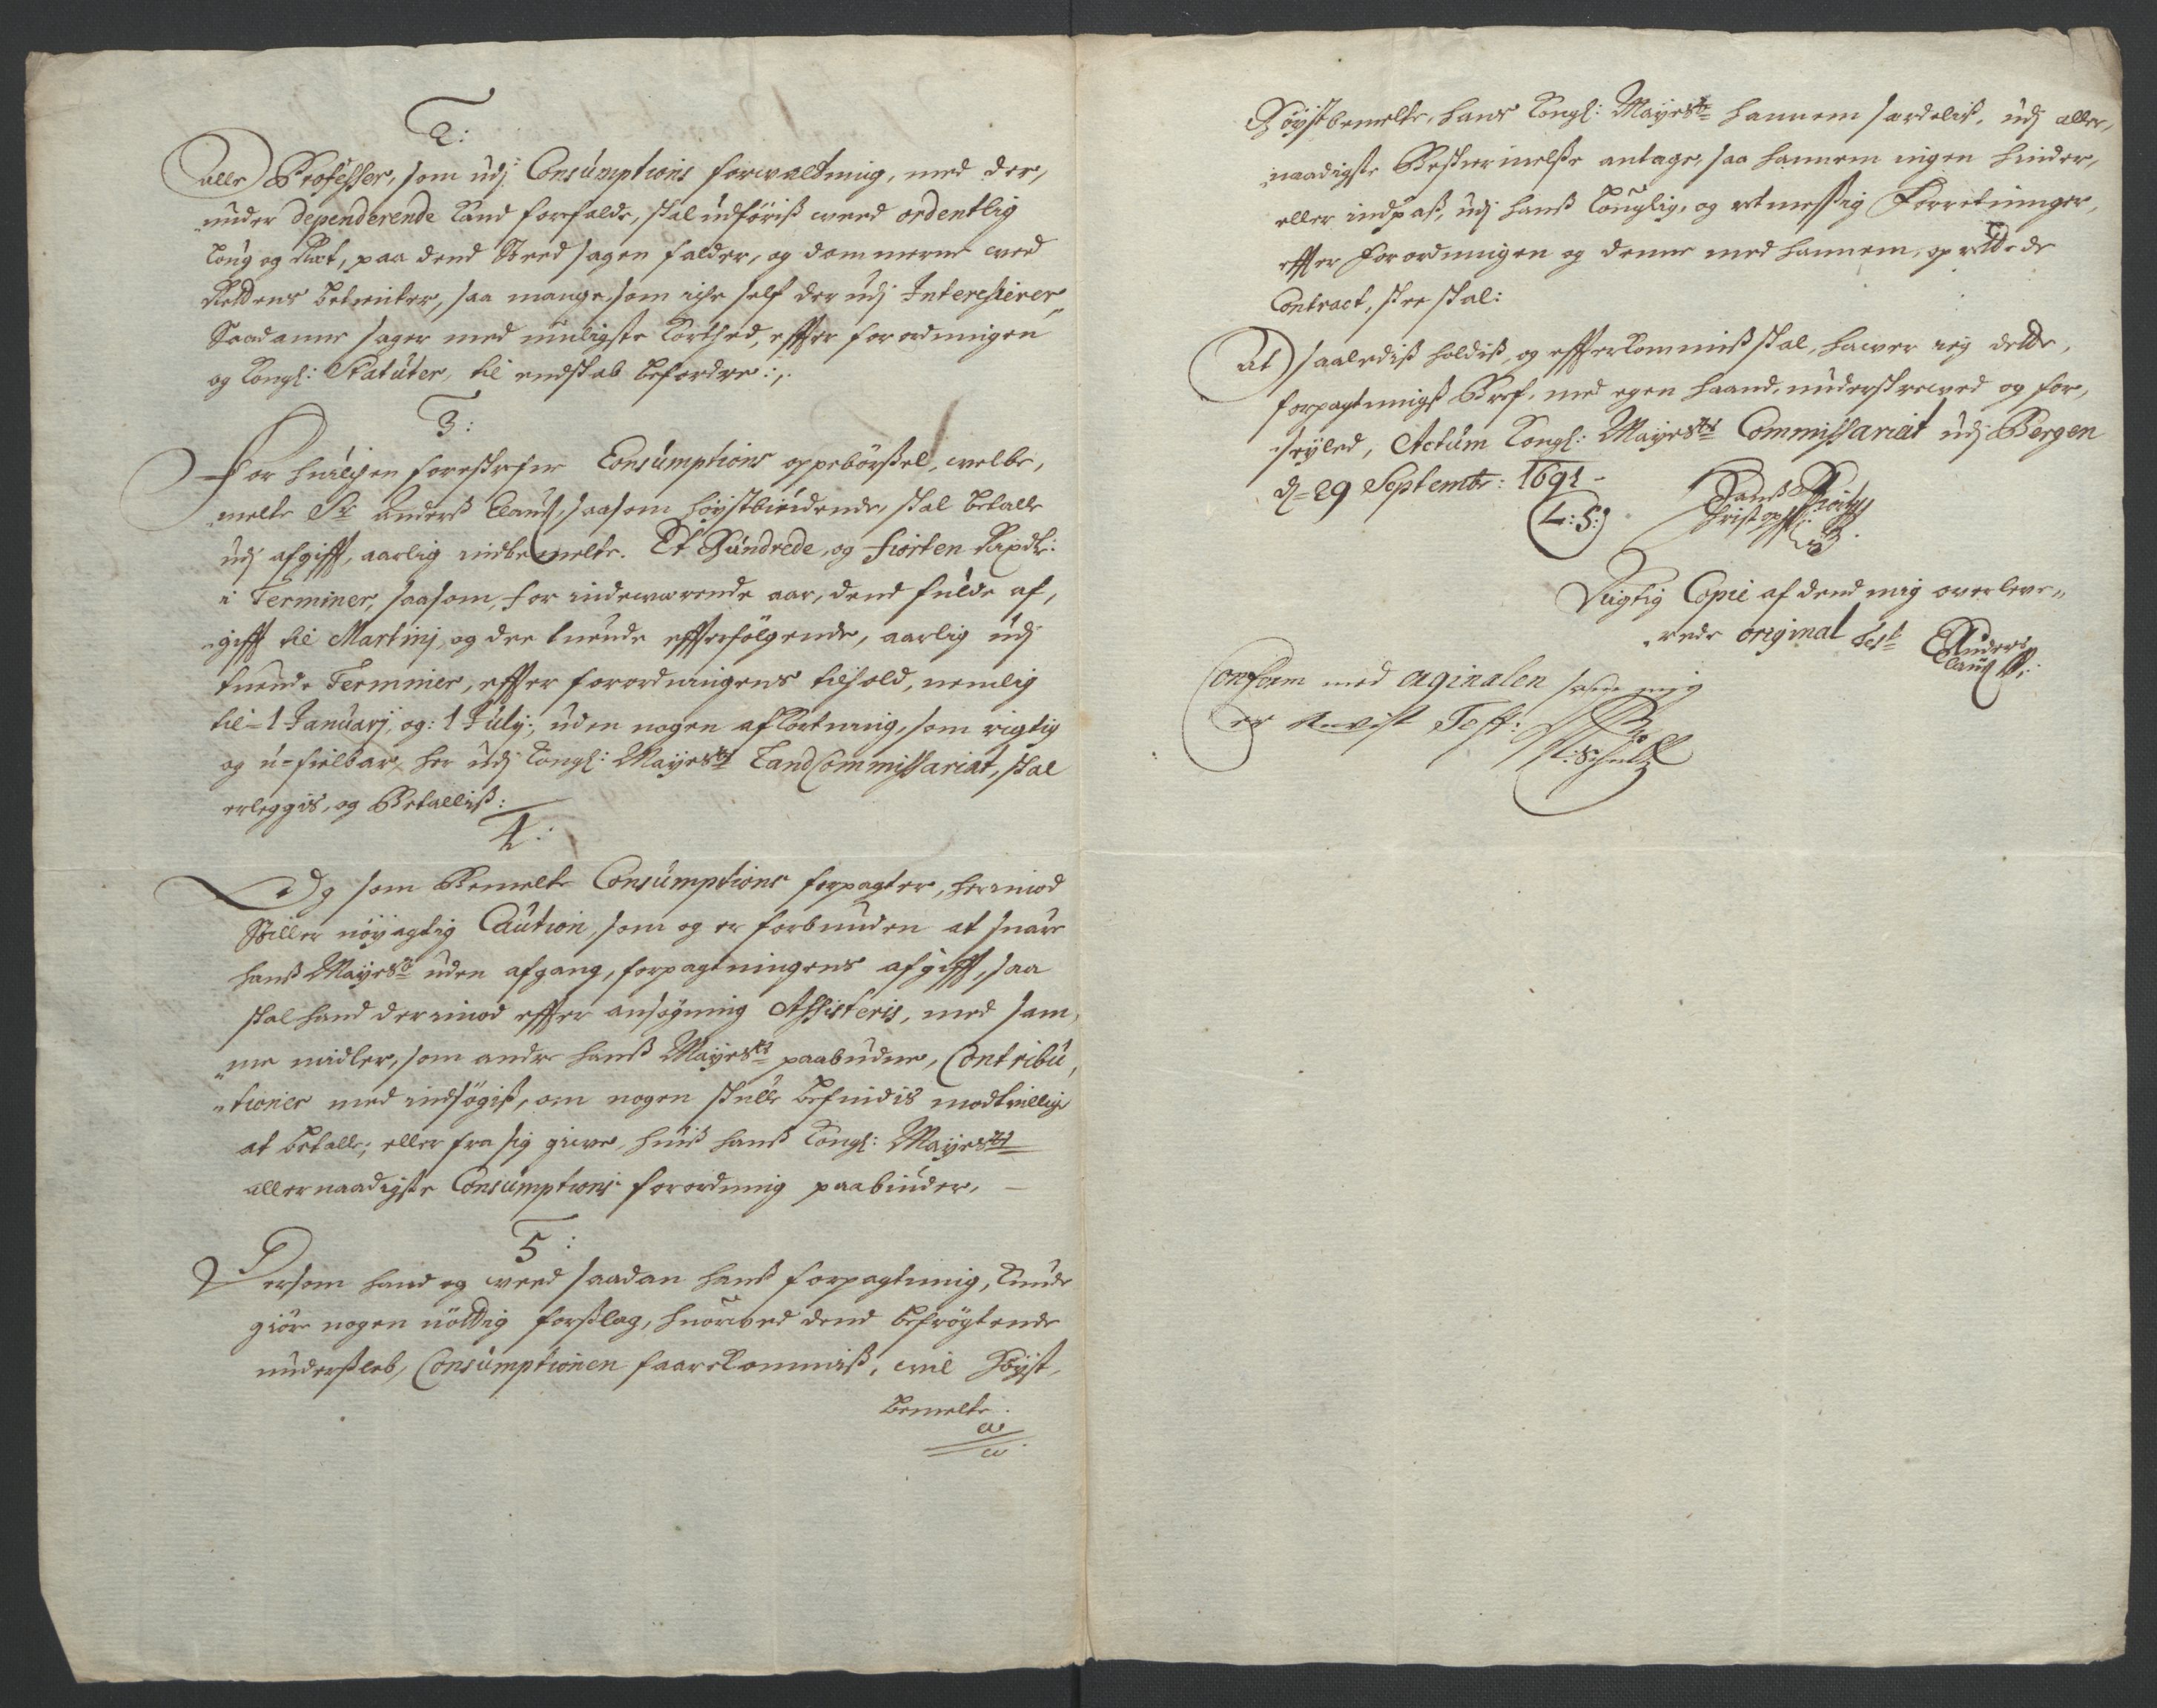 2:
Alle Processer, som udj Consumptions forvaltning, med der,
under dependerende kand forfalde, skal udføriß wed ordentlig
Loug og Ræt, paa dend Sted sagen falder, og dommerne wed
Rettens betienter, saa mange, som iche self der udj Interesserer,
Saadanne sager med muligste Korthed, effter forordningen
og Kongl: Statuter, til endskab befordre:,
3:
For huilchen foreskrefne Consumptions oppebörßel, welbe,
melte Sr Anderß Clauß, saasom höystbiudende, skal betalle
udj afgifft, aarlig indbemelte. Et Hundrede, og fiorten Rixdlr:
i Terminer, saasom, for indewærende aar, dend fulde af,
gifft til Martinj, og dee tuende effterfölgende, aarlig udj
tuende Terminer, effter forordningens tilhold, nemlig
til 1 Januarj, og: 1 July, uden nogen afkortning, som rigtig
og u-feilbar, her udj Kongl: Mayestts LandCommissariat, skal
erleggis, og Betalliß:
4:
Og som Bemelte Consumptions forpagter, herimod
Stiller nöyagtig Caution, som og er forbunden at suare
hanß Mayestt uden afgang, forpagtningens afgifft, saa
skal hand derimod effter ansøgning Assisteris, med sam,
me midler, som andre hanß Mayestts paabudne, Contribu,
tioner med indsögiß, om nogen skulle befindis modtwillig
at betalle, eller fra sig giewe, huiß hanß Kongl: Mayestts
allernaadigste Consumptions forordning paabiuder,
5:
Dersom hand og weed saadan hanß forpagtning, kunde
giöre nogen nöttig forßlag, huorwed dend befrögtende
underßleb, Consumptionen faarekommiß, wil Höyst,
bemelte
Höystbemelte, hans Kongl: Mayestt hannem særdeliß, udj aller,
naadigste Beskiermelße antage, saa hannem ingen hinder,
eller indpaß, udj hanß Louglig, og retmessig Forretninger,
effter Forordningen og denne med hannem, oprettede
Contract, skee skal:
At saalediß holdiß, og effterkommiß skal, hawer ieg dette,
forpagtningß Bref, med egen haand, underskrewed og for,
seyled, Actum Kongl: Mayestts Commissariat udj Bergen
d= 29 Septembr: 1691 -
(L:S:)
Hanß
Christopff:
Rigtig Copie af dend mig overlewe,,
rede original Test Anders
Clauß
Conform med orginalen som mig
er anvist Test: